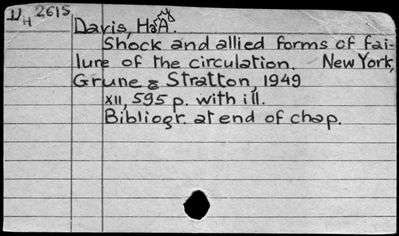 UH 2615
Davis, Harry A.
Shock and allied forms of fai-
lure of the circulation. New York,
Grune & Stratton, 1949
XII, 595 p. with ill.
Bibliogr. at end of chap.